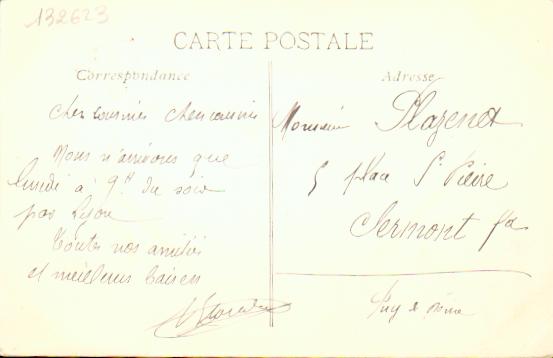 132623
CARTE POSTALE
Correspondance
Adresse
Nous n'arrivons que
lundi à 9h du soir
par Lyon
Toutes nos amitiés
et meilleurs baisers
Monsieur Plazenet
5 place St Pierre
Clermont Fd
Puy de Dôme